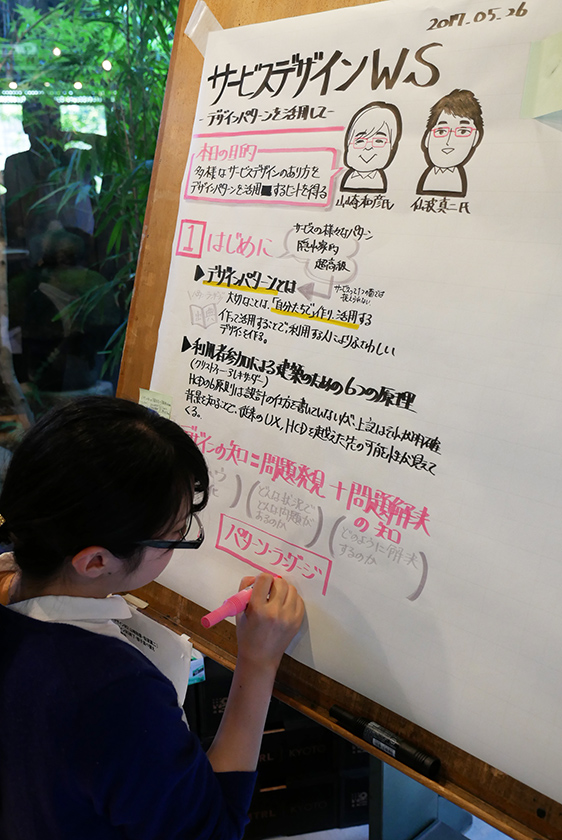 2017.05.26
サービスデザインWS
-デザインパターンを活用して-
本日の目的
多様なサービスデザインのあり方を
デザインパターンを活用するヒントを得る
山崎和彦氏
仙波真二氏
1 はじめに
サービスの様々なパターン
隠れ家的
超高級
▶デザインパターンとは
大切なことは、「自分たちで」作り、活用する
作って活用することで、利用する人によりふさわしい
デザインを作る。
▶利用者参加による建築のための6つの原理
(クリストファー・アレキサンダー)
HCDの6原則は設計の仕方を書いていないが、上記はそれが明確
背景を知ることで、従来のUX、HCDを超えた先の可能性が見えて
くる。
デザインの知=問題発見+問題解決
の知
どんな状況で
どんな問題が
あるのか
どのように解決
するのか
パターン・ランゲージ
KYOTO